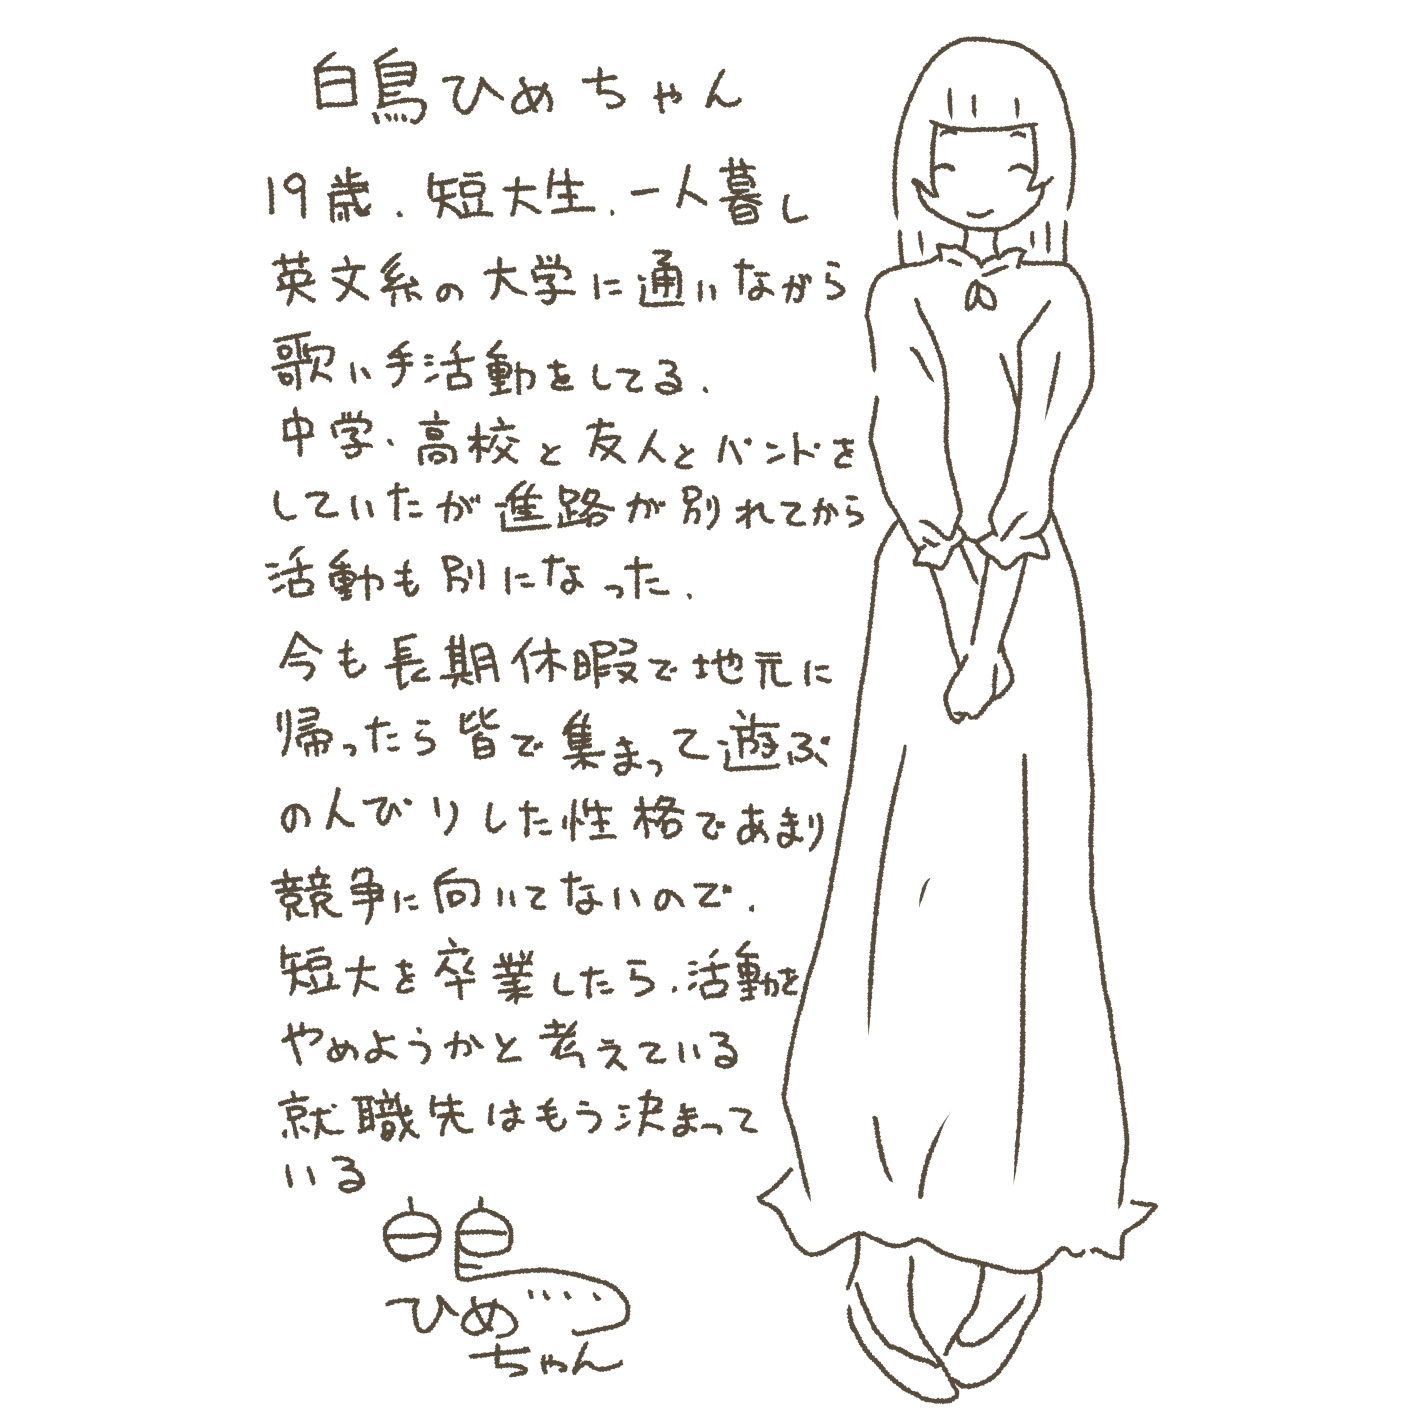 白鳥ひめちゃん
19歳.短大生.一人暮し
英文系の大学に通いながら
歌い手活動をしてる.
中学.高校と友人とバンドを
していたが進路が別れてから
活動も別になった.
今も長期休暇で地元に
帰ったら皆で集まって遊ぶ
のんびりした性格であまり
競争に向いてないので.
短大を卒業したら.活動を
やめようかと考えている
就職先はもう決まって
いる
白鳥
ひめ
ちゃん